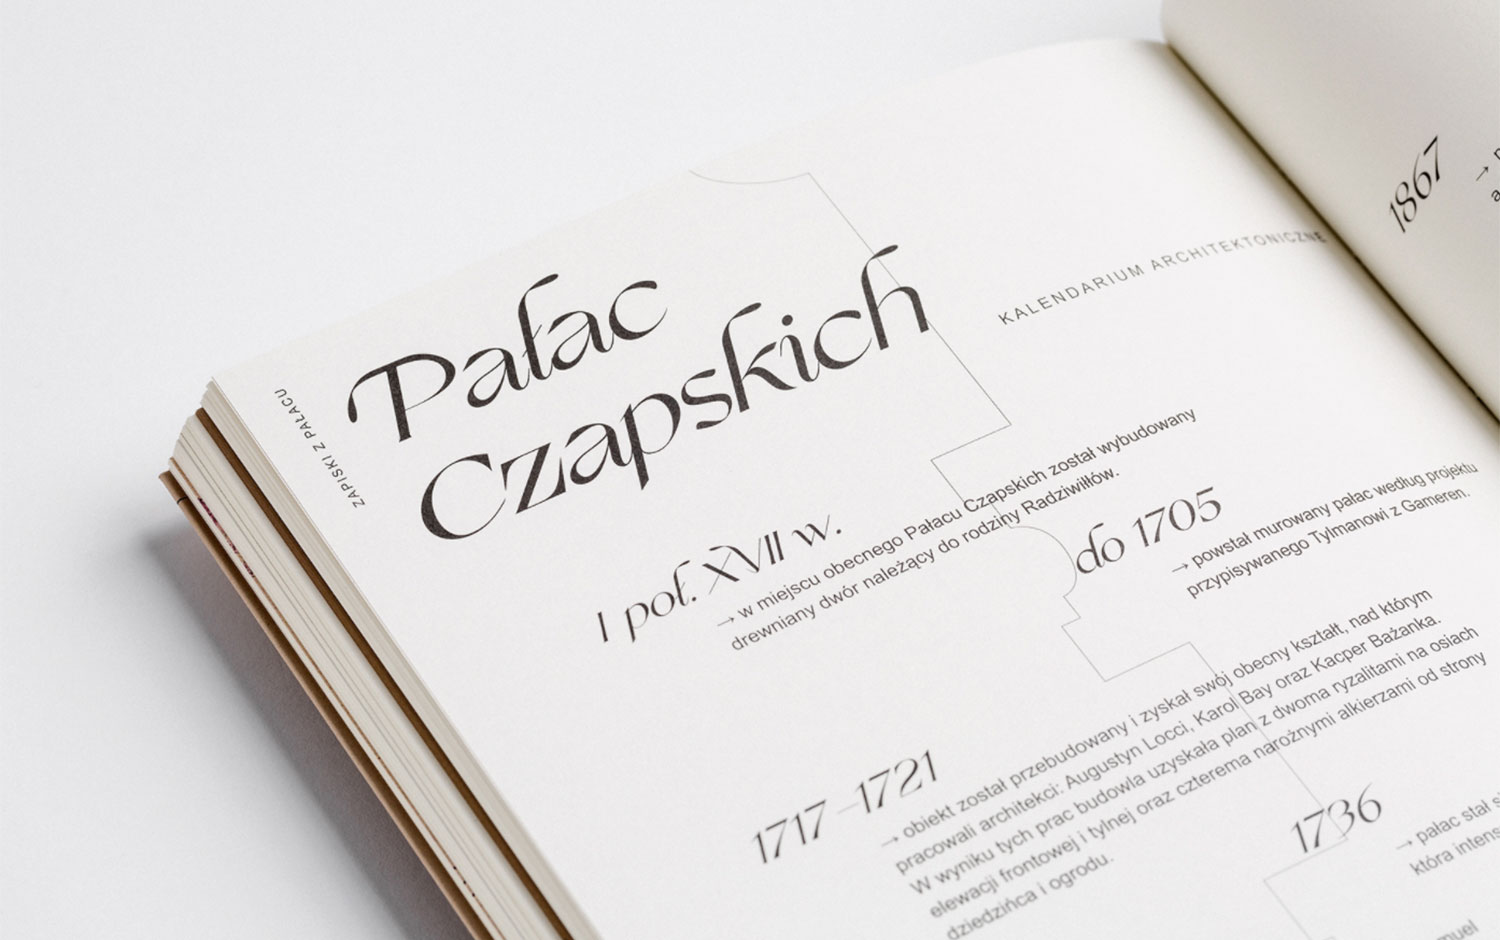 ZAPISKI Z PAŁACU
Pałac
Czapskich
KALENDARIUM ARCHITEKTONICZNE
I poł. XVII w.
→ w miejscu obecnego Pałacu Czapskich został wybudowany
drewniany dwór należący do rodziny Radziwiłłów.
do 1705
→ powstał murowany pałac według projektu
przypisywanego Tylmanowi z Gameren.
1717–1721
→ obiekt został przebudowany i zyskał swój obecny kształt, nad którym
pracowali architekci: Augustyn Locci, Karol Bay oraz Kacper Bażanka.
W wyniku tych prac budowla uzyskała plan z dwoma ryzalitami na osiach
elewacji frontowej i tylnej oraz czterema narożnymi alkierzami od strony
dziedzińca i ogrodu.
1736
→ pałac stał
która
1867
→